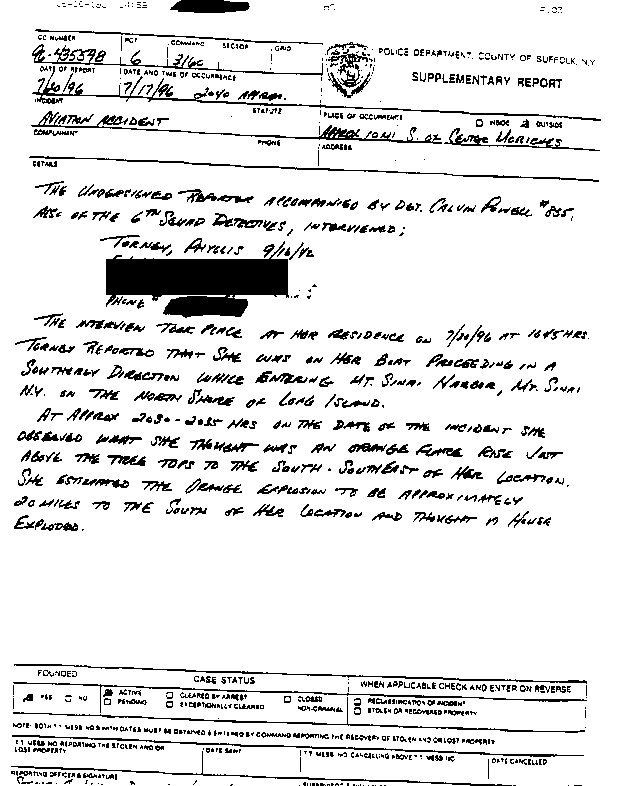 CC NUMBER PCT COMMAND SECTOR GRID
96-435598 6 3160
POLICE DEPARTMENT, COUNTY OF SUFFOLK, N.Y.
SUPPLEMENTARY REPORT
DATE OF REPORT DATE AND TIME OF OCCURRENCE
7/20/96 7/17/96 2040 APPROX.
INCIDENT STATUTE PLACE OF OCCURRENCE INSIDE OUTSIDE
AVIATION ACCIDENT APPROX 10 MI S. OF CENTER MORICHES
COMPLAINANT PHONE ADDRESS
DETAILS
THE UNDERSIGNED REPORTER ACCOMPANIED BY DET. CALVIN POWELL #855,
ALSO OF THE 6TH SQUAD DETECTIVES, INTERVIEWED;
TORNEY, PHYLLIS 9/16/42
PHONE #
THE INTERVIEW TOOK PLACE AT HER RESIDENCE ON 7/20/96 AT 1645 HRS.
TORNEY REPORTED THAT SHE WAS ON HER BOAT PROCEEDING IN A
SOUTHERLY DIRECTION WHILE ENTERING MT. SINAI HARBOR, MT. SINAI
N.Y. ON THE NORTH SHORE OF LONG ISLAND.
AT APPROX 2030-2035 HRS ON THE DATE OF THE INCIDENT SHE
OBSERVED WHAT SHE THOUGHT WAS AN ORANGE FLARE RISE JUST
ABOVE THE TREE TOPS TO THE SOUTH-SOUTHEAST OF HER LOCATION.
SHE ESTIMATED THE ORANGE EXPLOSION TO BE APPROXIMATELY
20 MILES TO THE SOUTH OF HER LOCATION AND THOUGHT A HOUSE
EXPLODED.
FOUNDED CASE STATUS WHEN APPLICABLE CHECK AND ENTER ON REVERSE
YES NO ACTIVE CLEARED BY ARREST CLOSED RECLASSIFICATION OF INCIDENT
PENDING EXCEPTIONALLY CLEARED NON-CRIMINAL STOLEN OR RECOVERED PROPERTY
NOTE: BOTH T.T. MESS. NO.S WITH DATES MUST BE OBTAINED & ENTERED BY COMMAND REPORTING THE RECOVERY OF STOLEN AND OR LOST PROPERTY
T.T. MESS. NO. REPORTING THE STOLEN AND/OR DATE SENT T.T. MESS. NO. CANCELLING ABOVE T.T. MESS. NO. DATE CANCELLED
LOST PROPERTY
REPORTING OFFICER'S SIGNATURE